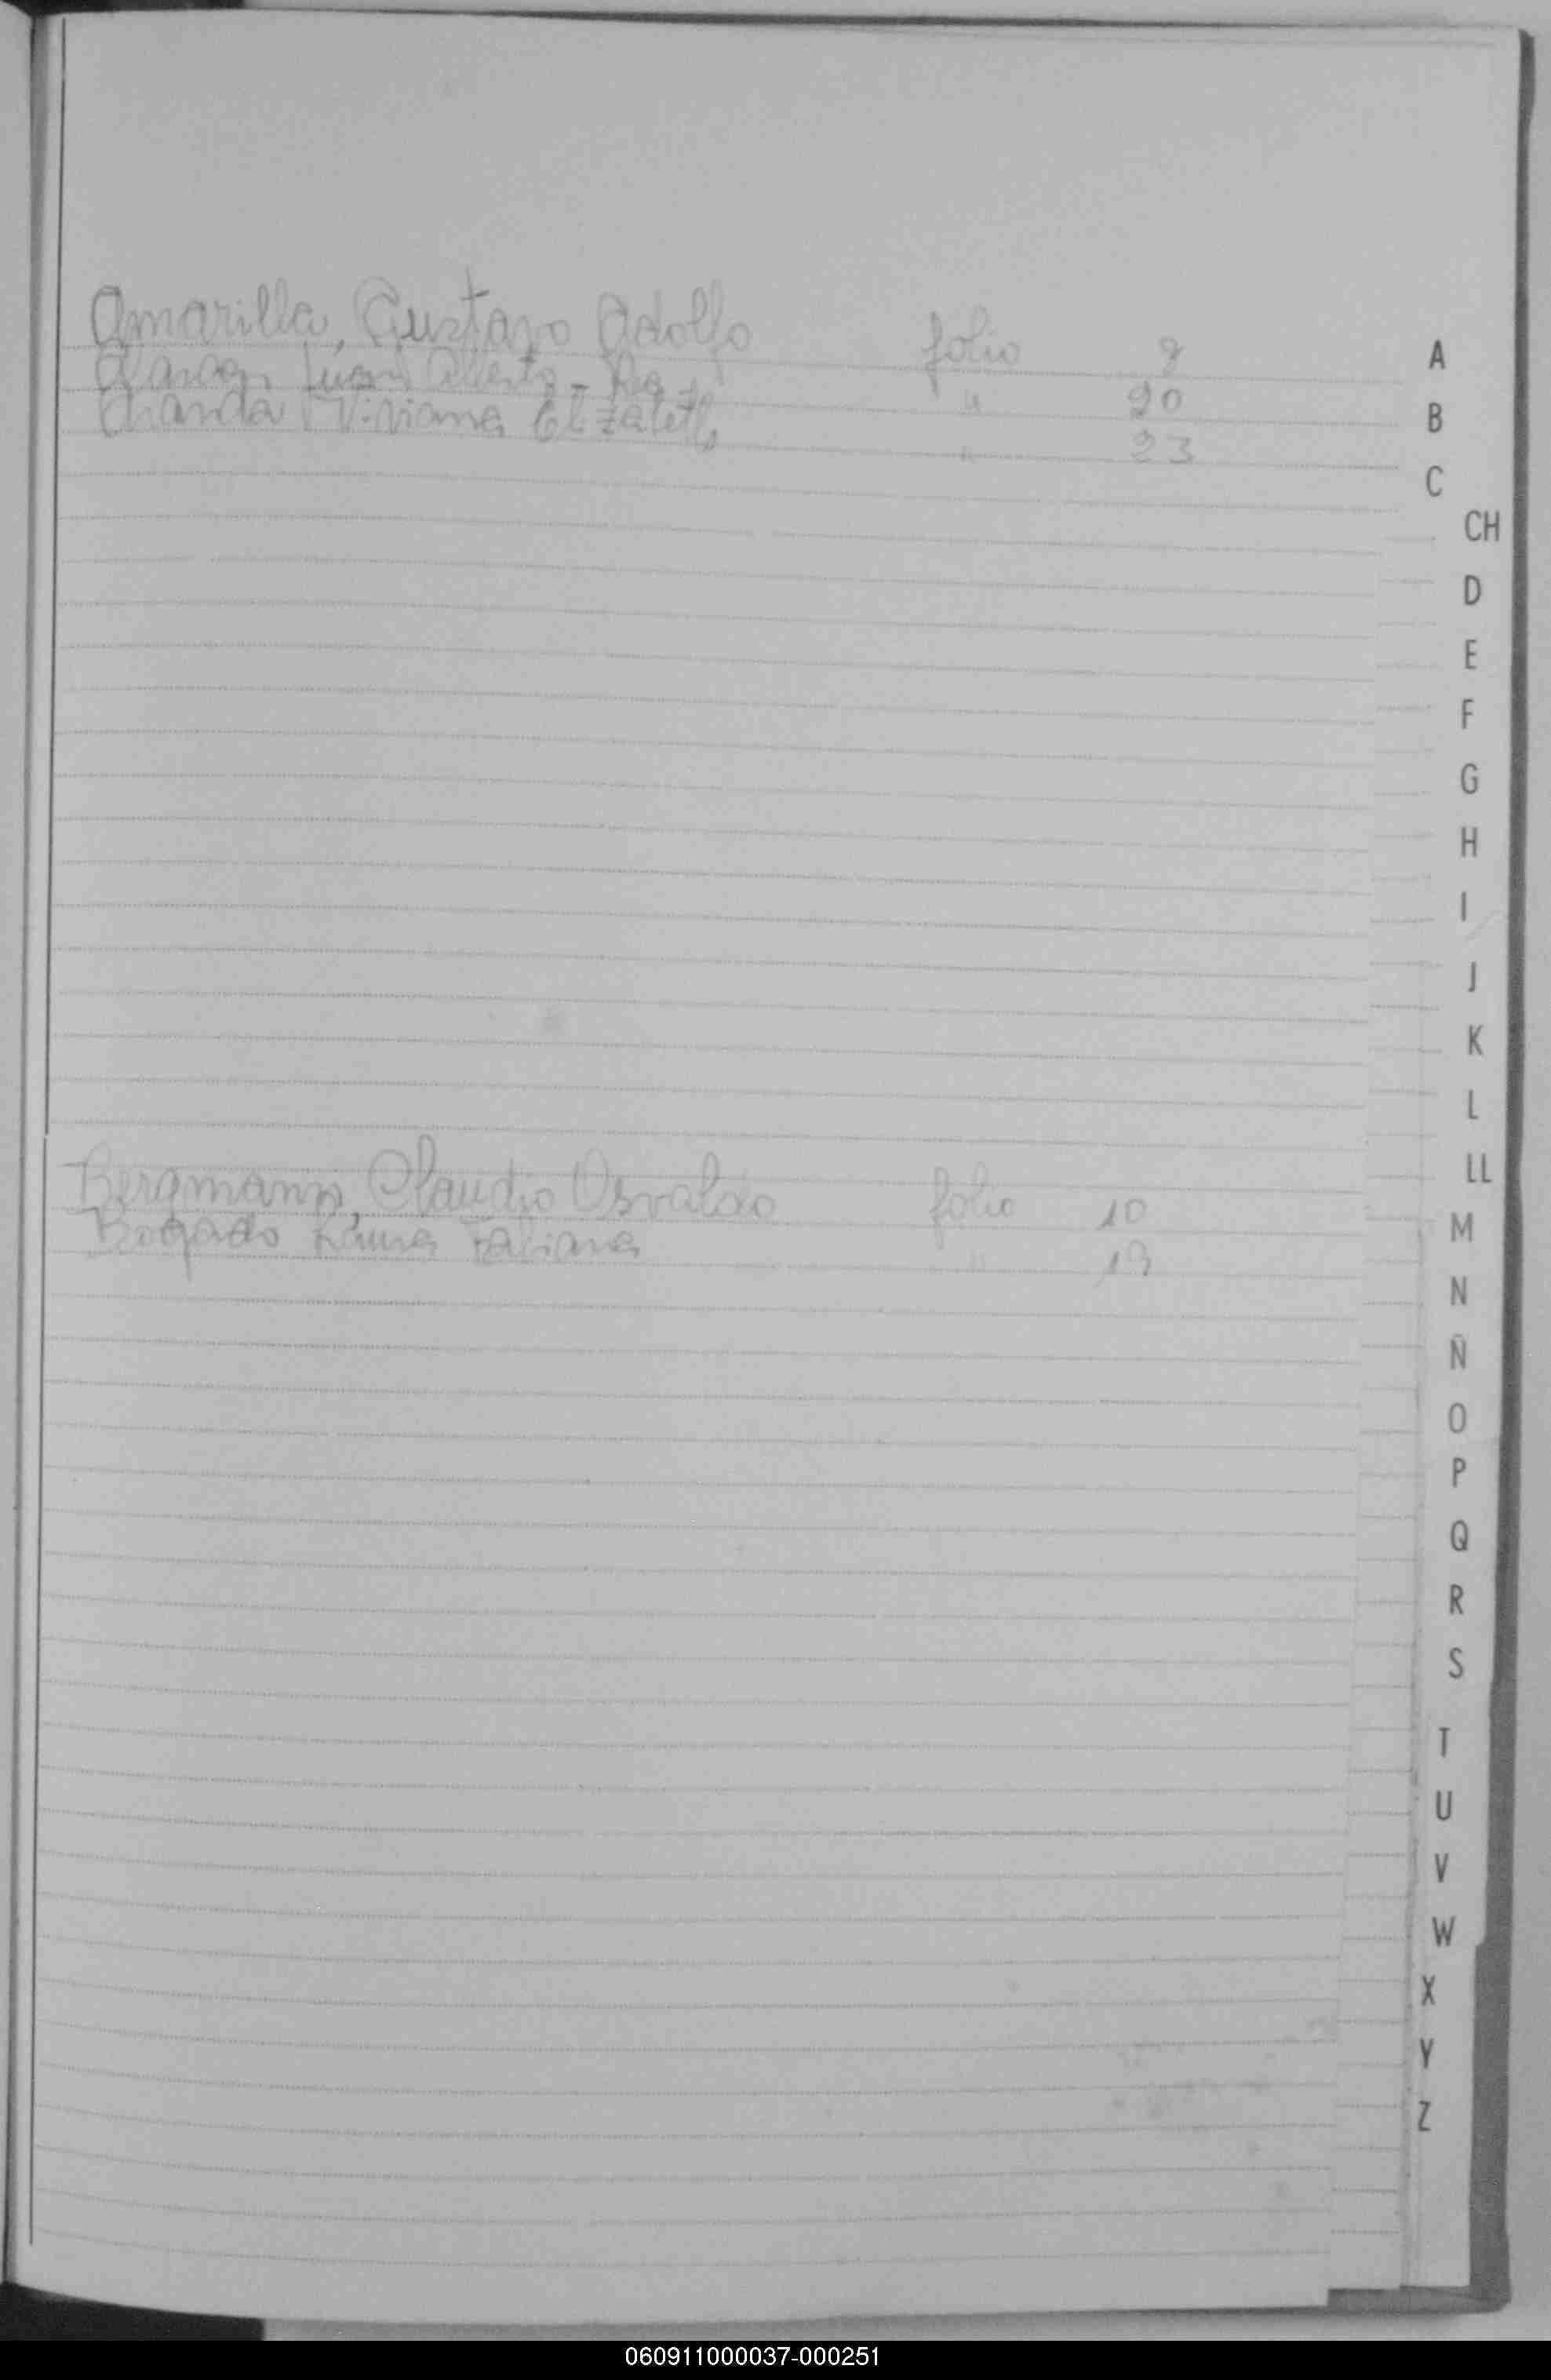 Amarilla, Gustavo Adolfo folio 8
Juan Alberto " 20
Aranda Viviana Elizabeth " 23
Bergmann, Claudio Osvaldo folio 10
Bogado Laura Fabiana " 19
A
B
C
CH
D
E
F
G
H
I
J
K
L
LL
M
N
Ñ
O
P
Q
R
S
T
U
V
W
X
Y
Z
060911000037-000251